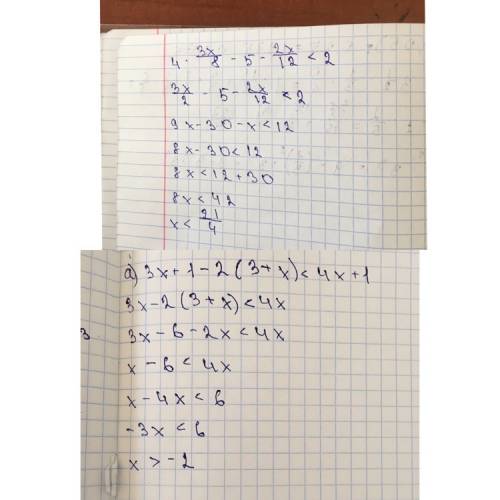 4 · 3x/8 - 5 - 2x/12 < 2
3x/2 - 5 - 2x/12 < 2
9x - 30 - x < 12
8x - 30 < 12
8x < 12 + 30
8x < 42
x < 21/4
a) 3x + 1 - 2(3 + x) < 4x + 1
3x - 2(3 + x) < 4x
3x - 6 - 2x < 4x
x - 6 < 4x
x - 4x < 6
-3x < 6
x > -2